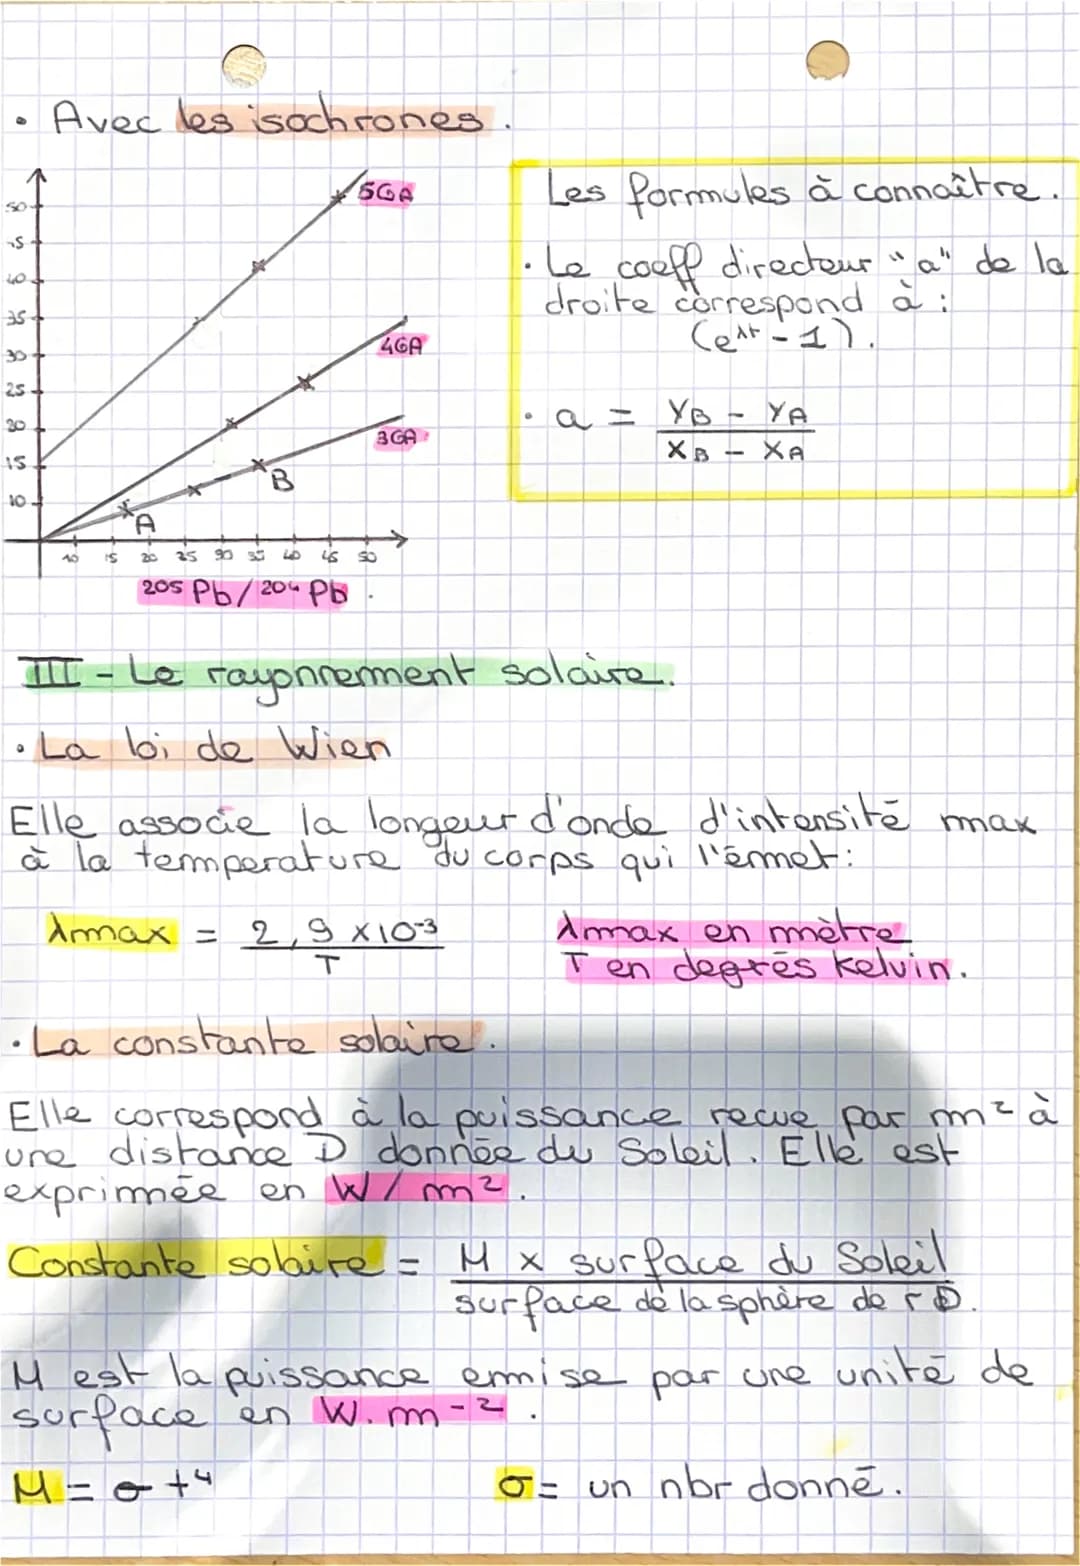 • Avec les isochrones.
50
45
40
35
30
25
20
15
10
5GA
4GA
3GA
A
B
10 15 20 25 30 35 40 45 50
205 Pb/204 Pb.
Les formules à connaître.
• Le coeff directeur "a" de la
droite correspond à :
(e^λt - 1).
• a = (YB - YA) / (XB - XA)
III - Le rayonnement solaire.
• La loi de Wien
Elle associe la longeur d'onde d'intensité max
à la temperature du corps qui l'émet:
λmax = 2,9 x10⁻³ / T
λmax en mètre
T en degrés Kelvin.
• La constante solaire.
Elle correspond à la puissance recue par m² à
une distance D donnée du Soleil. Elle est
exprimée en W/m².
Constante solaire = M x surface du Soleil / surface de la sphère de r D.
M est la puissance emise par une unité de
surface en W.m⁻².
M = σ t⁴
σ = un nbr donné.